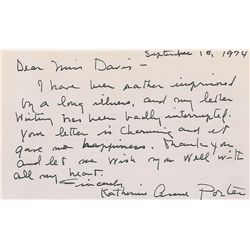 September 10, 1974
Dear Miss Davis —
I have been rather imprisoned
by a long illness, and my letter
writing has been badly interrupted.
your letter is charming and it
gave me happiness. Thank you
and let me wish you well with
all my heart.
Sincerely
Katherine Anne Porter